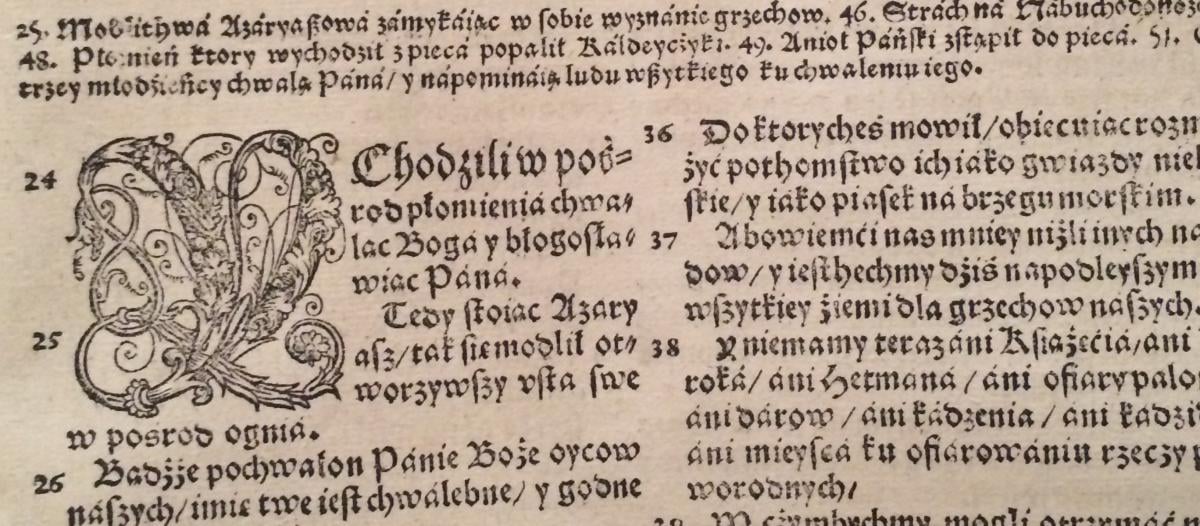 25. Modlithwá Azáryaszowá zámykáiąc w sobie wyznánie grzechow. 46. Strách ná Nábuchodonoz
48. Płomień ktory wychodził z piecá popalił Káldeycżyki. 49. Anioł Páński zstąpił do piecá. 51.
trzey młodzieńcy chwalą Páná/ y nápomináią ludu wszytkiego ku chwaleniu iego.
24 Chodzili w pos=
rod płomieniá chwa⸗
ląc Bogá y błogosła⸗
wiąc Páná.
25 Tedy stoiąc Azáry
asz/ ták sie modlił ot⸗
worzywszy vstá swe
w posrod ogniá.
26 Bądźże pochwalon Pánie Boże oycow
nászych/ imię twe iest chwálebne/ y godne
36 Do ktorycheś mowił/ obiecuiąc rozm
żyć pothomstwo ich iáko gwiazdy nie
skie/ y iáko piasek ná brzegu morskim.
37 Abowiemći nas mniey niżli inych na
dow/ y iesthechmy dziś napodleyszym
wszytkiey źiemi dla grzechow nászych.
38 Y niemamy teraz áni Kśiążęćiá/ áni
roká/ áni Hetmáná / áni ofiáry palo
áni dárow / áni kádzenia / áni kadzi
áni mieyscá ku ofiárowániu rzeczy p
worodnych/